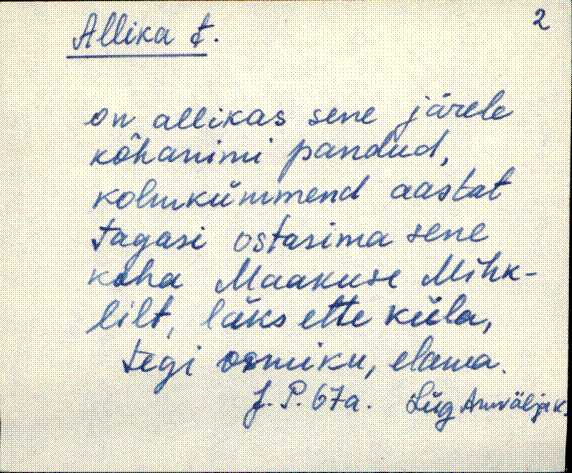 2
Allika t.
on allikas sene järele
kohanimi pandud,
kolmkümmend aastat
tagasi ostasima sene
koha Maakuse Mihk-
lilt, läks ette küla,
tegi oomiku, elama.
J. P. 67a. Lüg Arnvälja k.